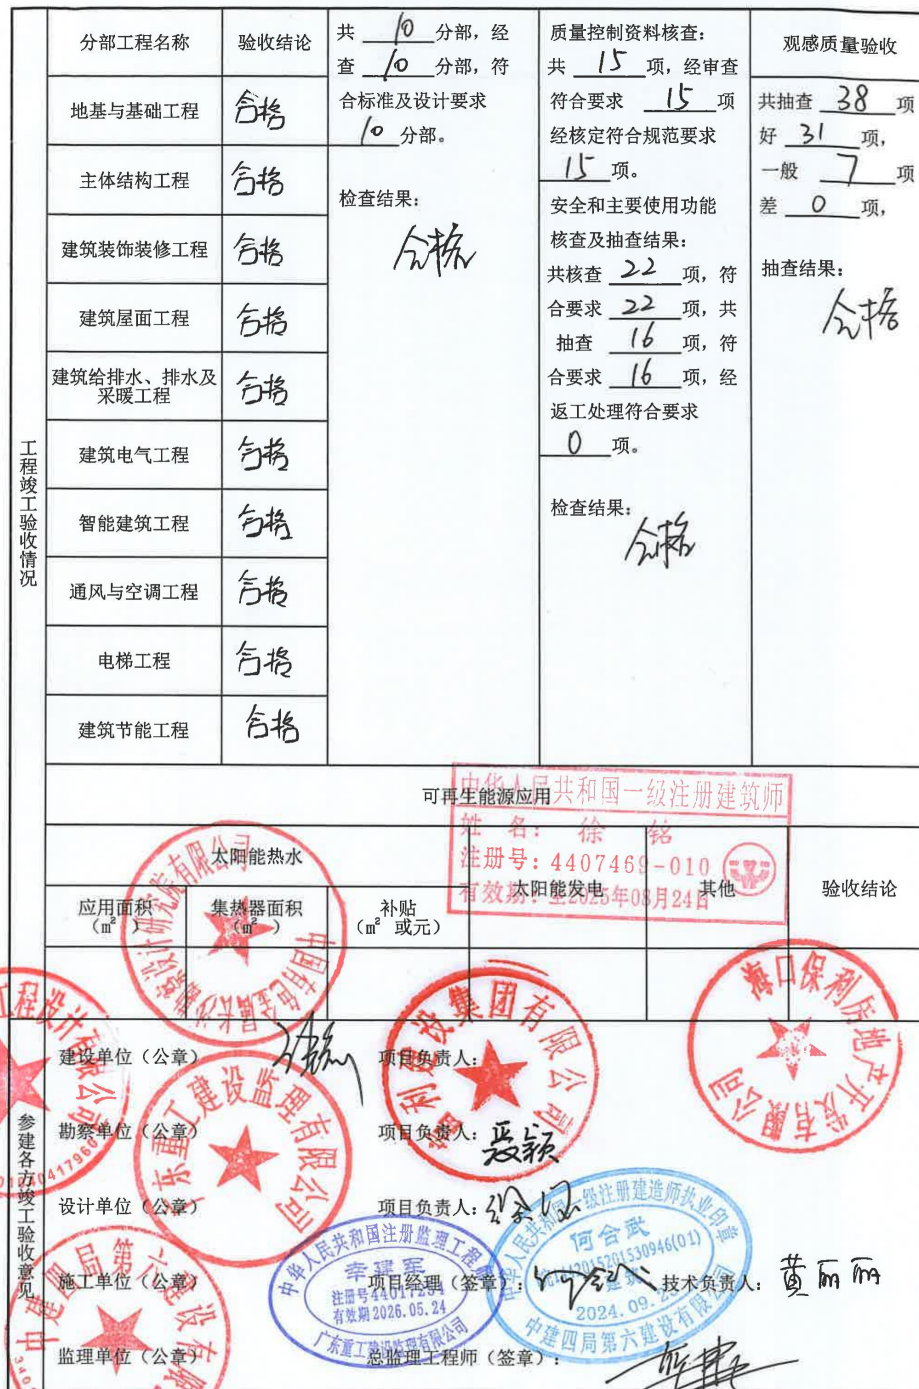 工程竣工验收情况
分部工程名称 验收结论
地基与基础工程 合格
主体结构工程 合格
建筑装饰装修工程 合格
建筑屋面工程 合格
建筑给排水、排水及
采暖工程 合格
建筑电气工程 合格
智能建筑工程 合格
通风与空调工程 合格
电梯工程 合格
建筑节能工程 合格
共 10 分部，经
查 10 分部，符
合标准及设计要求
10 分部。
检查结果：
合格
质量控制资料核查：
共 15 项，经审查
符合要求 15 项
经核定符合规范要求
15 项。
安全和主要使用功能
核查及抽查结果：
共核查 22 项，符
合要求 22 项，共
抽查 16 项，符
合要求 16 项，经
返工处理符合要求
0 项。
检查结果：
合格
观感质量验收
共抽查 38 项
好 31 项，
一般 7 项
差 0 项，
抽查结果：
合格
可再生能源应用
中华人民共和国一级注册建筑师
姓 名：徐 铭
注册号：4407469-010
有效期：至2025年08月24日
太阳能热水 太阳能发电 其他 验收结论
应用面积
（㎡ ）
集热器面积
（㎡ ）
补贴
（㎡ 或元）
参建各方竣工验收意见
建设单位（公章） 项目负责人：
勘察单位（公章） 项目负责人：
设计单位（公章） 项目负责人：
施工单位（公章） 项目经理（签章）： 技术负责人：黄丽丽
监理单位（公章） 总监理工程师（签章）：
中国有色金属长沙勘察设计研究院有限公司
工程设计有限公司
利建设集团有限公司
海口保利房地产开发有限公司
广东重工建设监理有限公司
中建四局第六建设有限
中华人民共和国注册监理工程师
李建军
有效期2026.05.24
广东重工建设监理有限公司
中华人民共和国一级注册建造师执业印章
何合武
建筑
中建四局第六建设有限公司